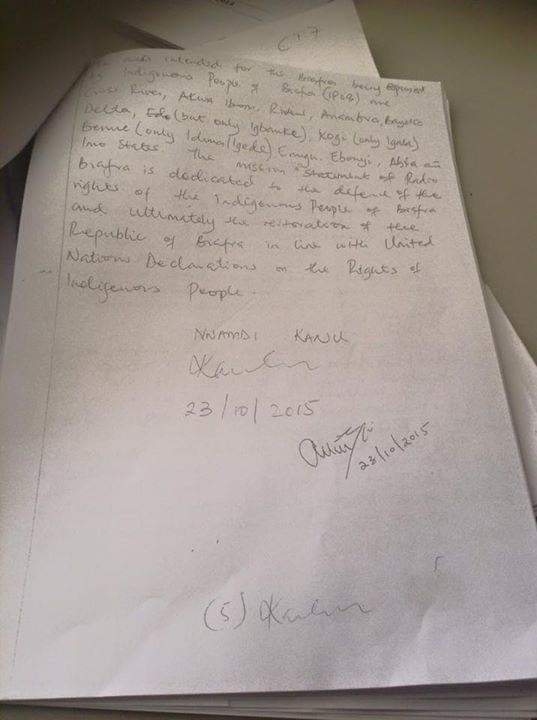 C17
intended for the Biafra being espoused
by Indigenous People of Biafra (IPOB) are
Cross River, Akwa Ibom, Rivers, Anambra, Bayelsa
Delta, Edo (but only Igbanke), Kogi (only Igala)
Benue (only Idoma/Igede) Enugu, Ebonyi, Abia an
Imo States. The mission statement of Radio
Biafra is dedicated to the defence of the
rights of the Indigenous People of Biafra
and ultimately the restoration of the
Republic of Biafra in line with United
Nations Declarations on the Rights of
Indigenous People.
NNAMDI KANU
23/10/2015
23/10/2015
(5)